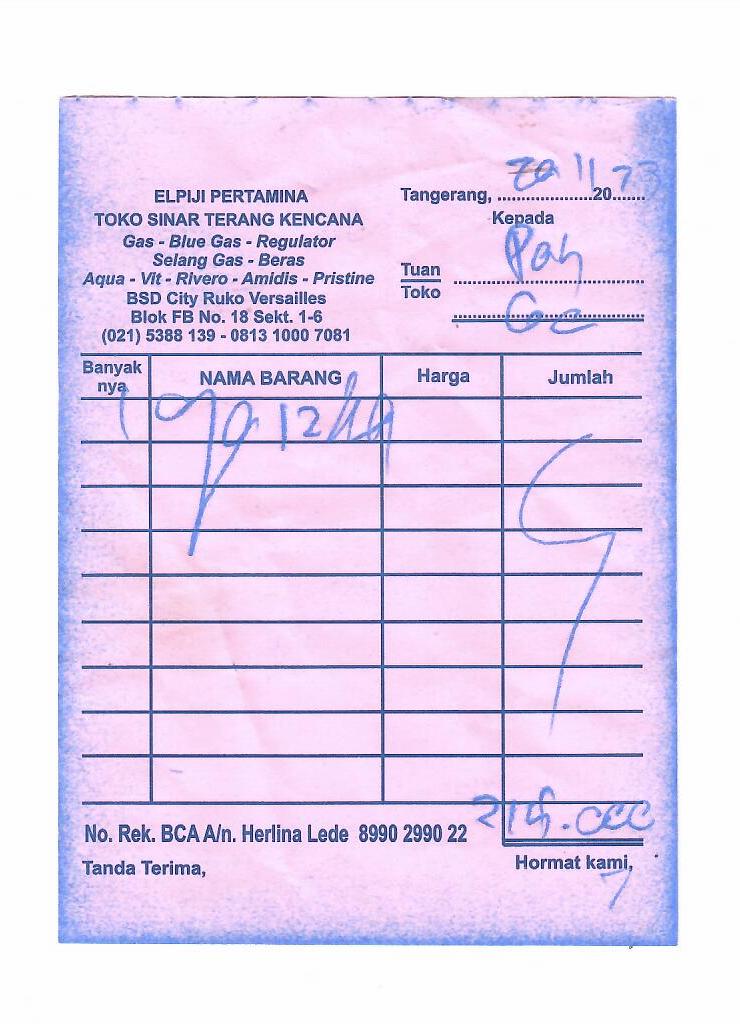 ELPIJI PERTAMINA
TOKO SINAR TERANG KENCANA
Gas - Blue Gas - Regulator
Selang Gas - Beras
Aqua - Vit - Rivero - Amidis - Pristine
BSD City Ruko Versailles
Blok FB No. 18 Sekt. 1-6
(021) 5388 139 - 0813 1000 7081
Tangerang, 11 2023
Kepada
Tuan
Toko
Banyak nya NAMA BARANG Harga Jumlah
1 12 kg
No. Rek. BCA A/n. Herlina Lede 8990 2990 22
Tanda Terima,
Hormat kami,